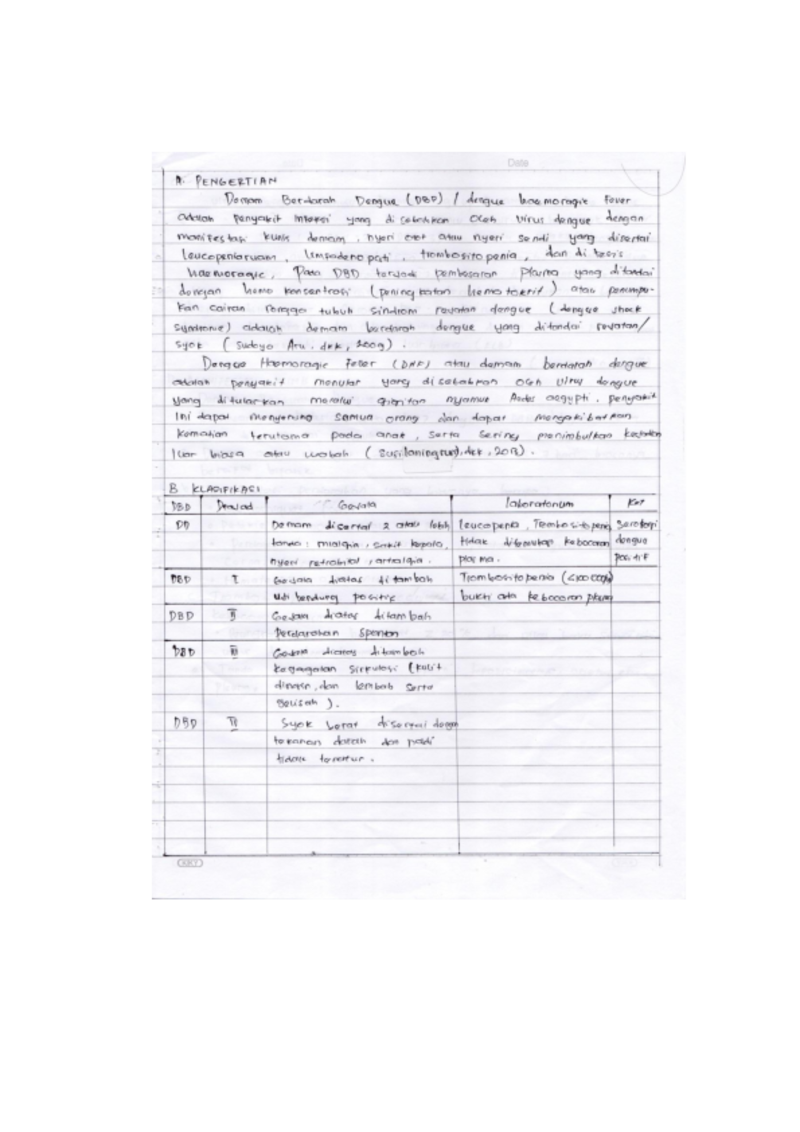 Date
A. PENGERTIAN
Demam Berdarah Dengue (DBD) / dengue haemoragic Fever
adalah penyakit infeksi yang disebabkan oleh virus dengue dengan
manifestasi klinis demam, nyeri otot atau nyeri sendi yang disertai
leucopenia ruam, limpadenopati, trombositopenia, dan di tesis
haemoragic, Pada DBD terjadi pembesaran plasma yang ditandai
dengan hemo konsentrasi (peningkatan hematokrit) atau penumpu-
kan cairan rongga tubuh sindrom renjatan dengue (dengue shock
Syndrome) adalah demam berdarah dengue yang ditandai renjatan/
syok (Sudoyo Aru. dkk, 2009).
Dengue Haemoragic Fever (DHF) atau demam berdarah dengue
adalah penyakit menular yang disebabkan oleh virus dengue
yang ditularkan melalui gigitan nyamuk Aedes aegypti. penyakit
ini dapat menyerang semua orang dan dapat mengakibatkan
kematian terutama pada anak, serta sering menimbulkan kejadian
luar biasa atau wabah ( dkk, ).
B KLASIFIKASI
DBD Derajad Gejala laboratorium Ket
DD Demam disertai 2 atau lebih leucopenia, Trombositopeni Serologi
tanda: mialgia, sakit kepala, tidak ditemukan kebocoran dengue
nyeri retroorbital, artralgia. plasma. positif
DBD I Gejala diatas ditambah Trombositopenia (<100.000)
Uji bendung positif bukti ada kebocoran plasma
DBD II Gejala diatas ditambah
Perdarahan spontan
DBD III Gejala diatas ditambah
kegagalan sirkulasi (kulit
dingin, dan lembab serta
gelisah).
DBD IV Syok berat disertai dengan
tekanan darah dan nadi
tidak teratur.
KKY